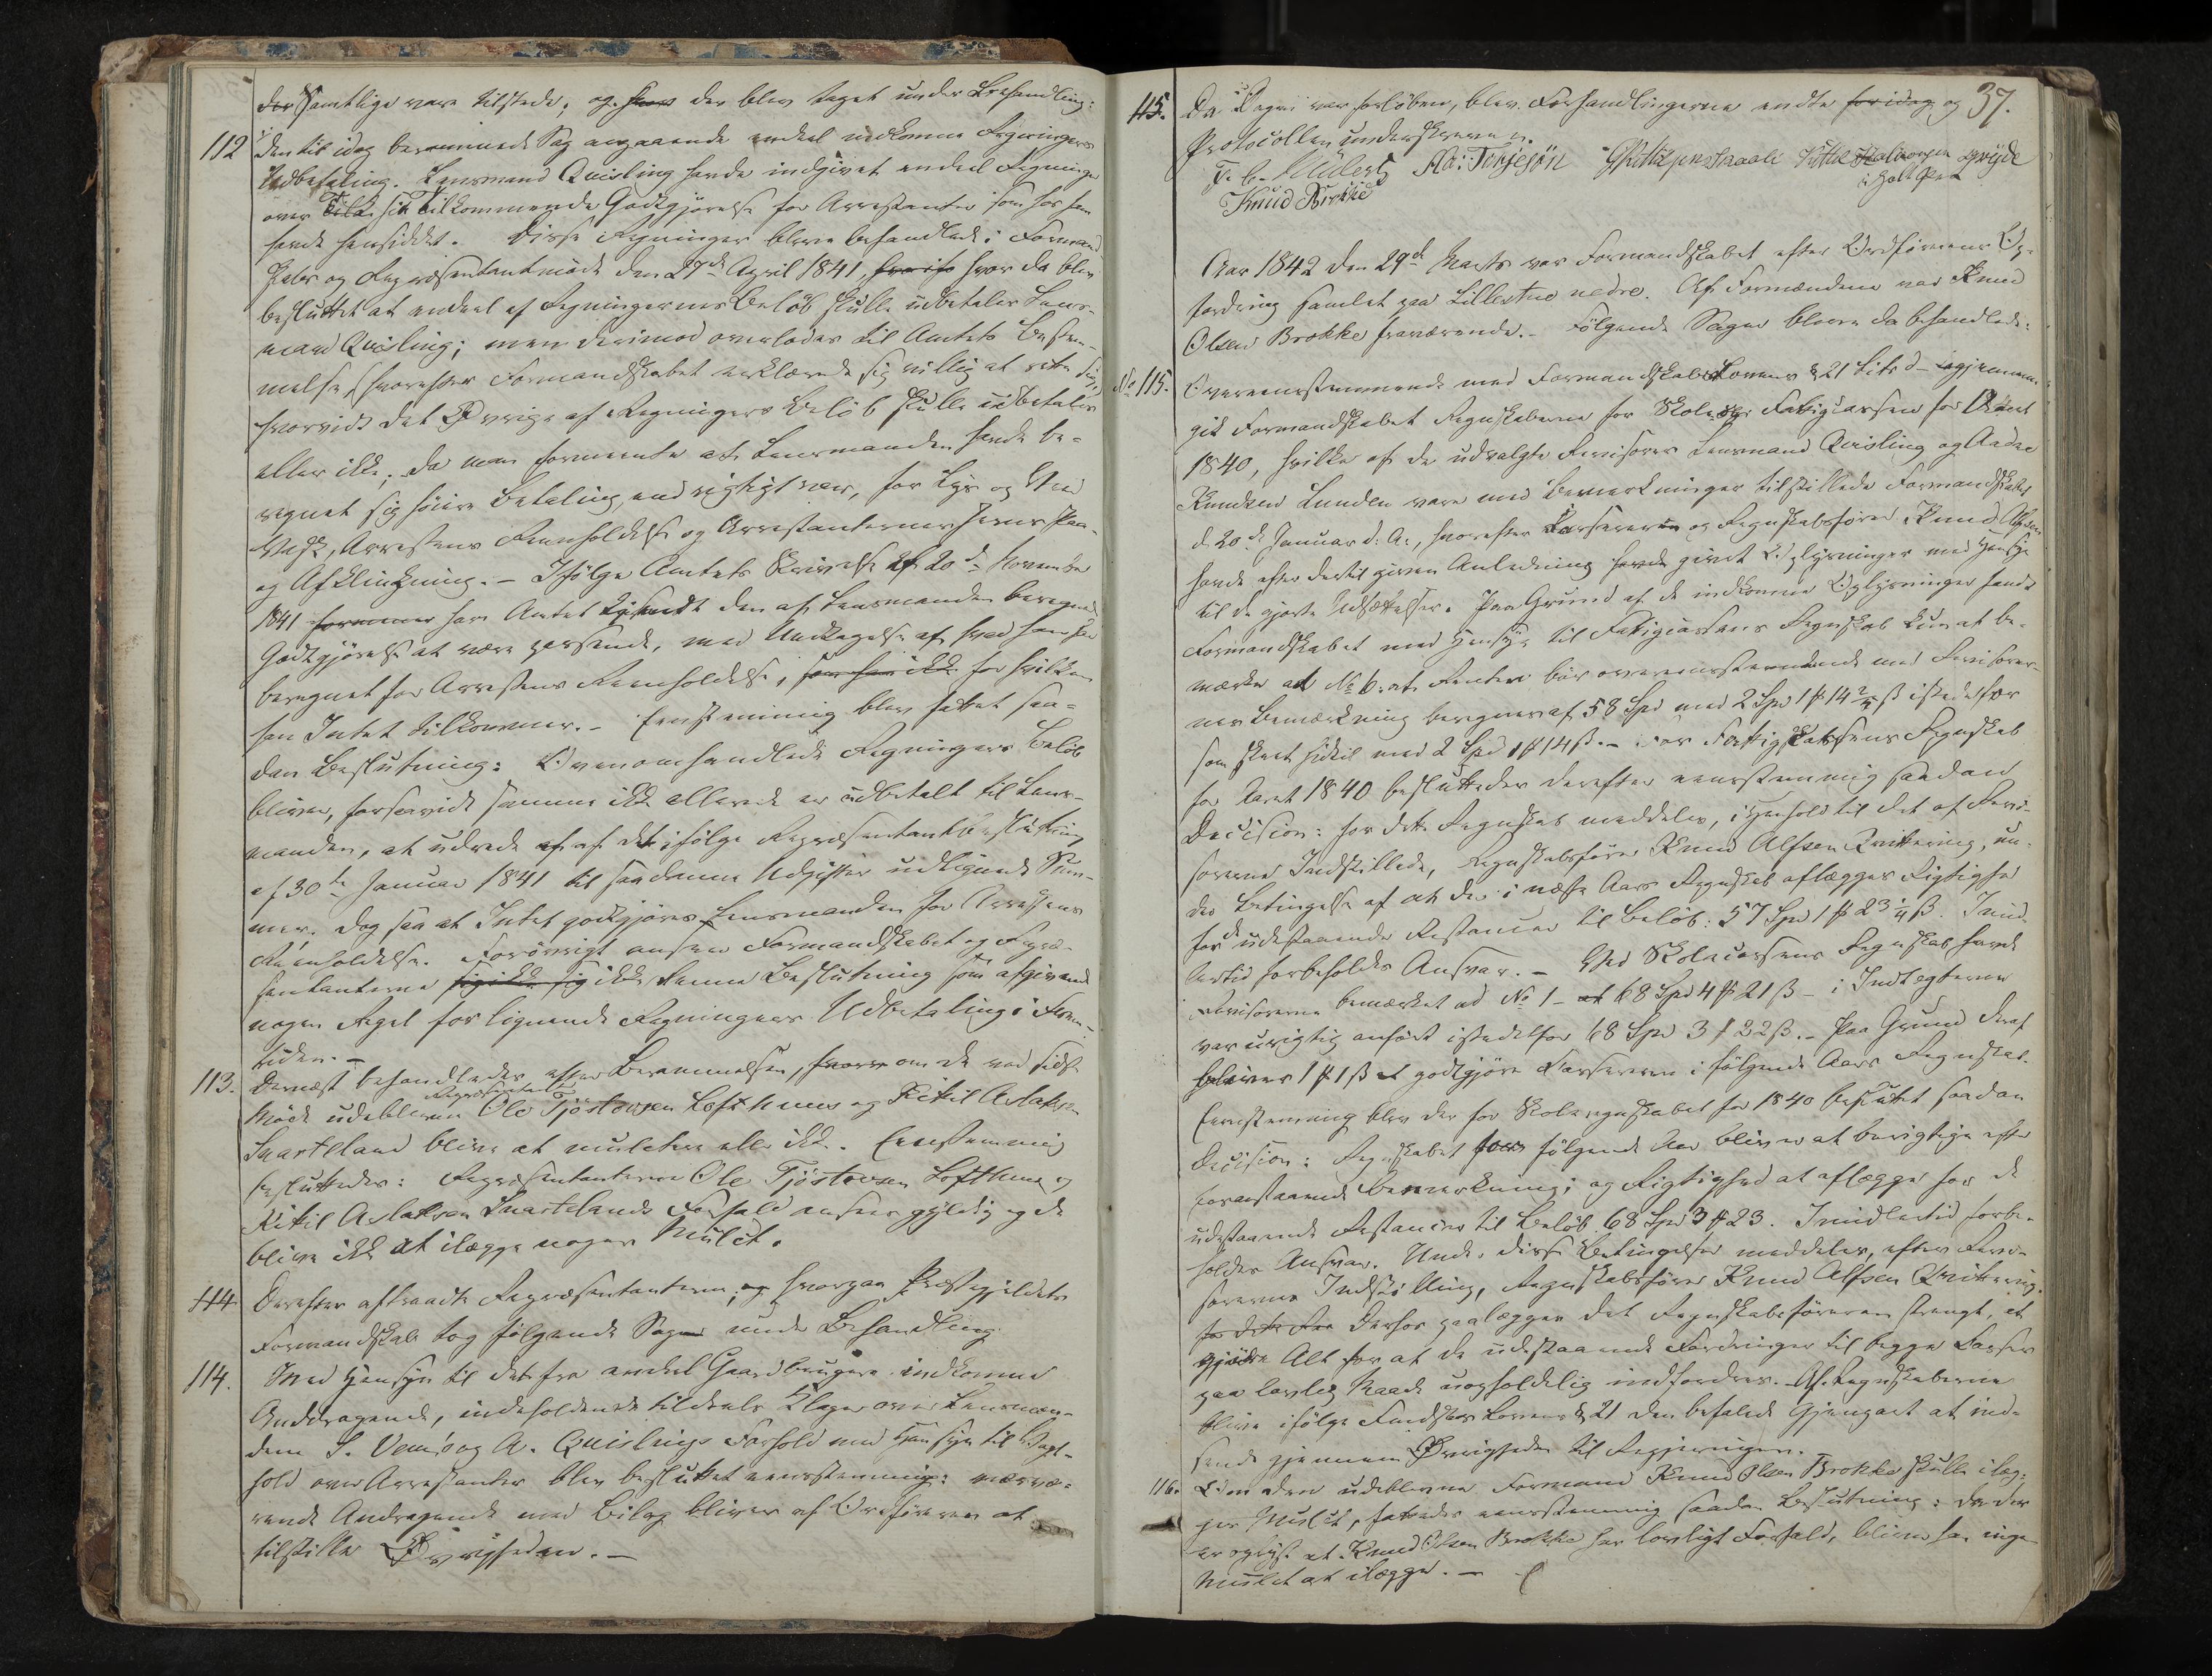 der Samtlige vare tilstede, og hvor der blev taget under Behandling:
112 Den til idag berammede Sag angaaende endeel indkomne Regningers
Udbetaling. Lensmand Quisling havde indgivet endeel Regninger
over sit Tilkommende Godtgjørelse for Arrestanter som hos ham
havde hensiddet. Disse Regninger bleve behandlede i Formand-
skabs og Repræsentantmøde den 27de April 1841, hvor da blev
besluttet at endeel af Regningernes Beløb skulle udbetales Lens-
mand Quisling; men derimod overlodes til Amtets Bestem-
melse, hvorefter Formandskabet erklærede sig villig at rette sig,
hvorvidt det Øvrige af Regningers Beløb skulle udbetales
eller ikke; da man formeente at Lensmanden havde be-
regnet sig høiere Betaling, end rigtigt var, for Lys og Ved
Vask, Arrestens Reenholdelse og Arresternes Jerns Paa-
og Afklinkning. - Ifølge Amtets Skrivelse af 20de November
1841 har Amtet kjendt den af Lensmanden beregnede
Godtgjørelse at være passende, med Undtagelse af hvad han har
beregnet for Arrestens Reenholdelse, for hvilken
han Intet tilkommer. - Eenstemmig blev fattet saa-
dan Beslutning: Ovenomhandlede Regningers Beløb
bliver, forsaavidt samme ikke allerede er udbetalt til Lens-
manden, at udrede af det ifølge Repræsentantbeslutning
af 30te Januar 1841 til saadanne Udgifter udlignede Sum-
mer. Dog saa at Intet godtgjøres Lensmanden for Arrestens
Reenholdelse. Forøvrigt ansees Formandskabet og Repræ-
sentanterne ikke denne Beslutning som afgivende
nogen Regel for lignende Regningers Udbetaling i Frem-
tiden. -
113. Dernæst behandledes efter Berammelsen, om de ved sidste
Møde udeblevne Repræsentanter Ole Tjøstovsen Lofthuus og Kitil Aslaksen
Svarteland bliver at mulctere eller ikke. Eenstemmig
besluttedes: Repræsentanterne Ole Tjøstovsen Lofthuus og
Kitil Aslaksen Svartelands Forfald ansees gyldig og de
blive ikke at ilægge nogen Mulct.
114 Derefter aftraadte Repræsentanterne, og hvorpaa Præstegjeldets
Formandskab tog følgende Sager under Behandling
114. Med Hensyn til det fra endeel Gaardbrugere indkomne
Anddragende, indeholdende tildeels Klager over Lensmæn-
dene S. Vemo og A. Quislings Forhold med Hensyn til Vagt-
hold over Arrestanter blev besluttet eenstemmig: nærvæ-
rende Andragende med Bilag bliver af Ordføreren at
tilstille Øvrigheden. -
37.
115. Da Dagen var forløben, blev Forhandlingerne endte for idag og
Protocollen underskreven
F. C. Mülertz Ad: Terjesøn Kittil
i Holt Præst
Knud Brokke
Aar 1842 den 29de Marts var Formandskabet efter Ordførerens Op-
fordring samlet paa Lillestue nedre. Af Formændene var Knud
Olsen Brokke fraværende. - Følgende Sager bleve da behandlede:
No 115. Overeensstemmende med Formandskabslovens § 21 Litr d - igjennem-
gik Formandskabet Regnskaberne for Skole og Fattigcassen for Aaret
1840, hvilke af de udvalgte Revisorer Lensmand Quisling og Aadne
Knudsen Lunden vare med Bemærkninger tilstillede Formandskabet
d. 20de Januar d. A., hvorefter Kassereren og Regnskabsfører Knud Alfsen
havde efter dertil given Anledning havde givet Oplysninger med Hensyn
til de gjorte Udsættelser. Paa Grund af de indkomne Oplysninger fandt
Formandskabet med Hensyn til Fattigcassens Regnskab kun at be-
mærke ad No 6. at Renten bør overeensstemmende med Revisorer-
nes Bemærkning beregnes af 58 Spd med 2 Spd 1 # 14 2/5 ß istedetfor
som skeet hidtil med 2 Spd 1 # 14 ß. - For Fattigkassens Regnskab
for Aaret 1840 besluttedes derefter eensstemmig saadan
Decision: for dette Regnskab meddeles, i Henhold til det af Revi-
sorerne Indstillede, Regnskabsfører Knud Alfsen Qvittering, un-
der Betingelse af at der i næste Aars Regnskab aflægges Rigtighed
for de udestaaende Restancer til Beløb: 57 Spd 1 # 23 1/4 ß. Imid-
lertid forbeholdes Ansvar. - Ved Skolecassens Regnskab havde
Revisorerne bemærket ad No 1 - at 68 Spd 4 # 21 ß - i Indtægterne
var urigtig anført istedetfor 68 Spd 3 # 22 ß. - Paa Grund deraf
bliver 1 # 1 ß at godtgjøre Kassereren i følgende Aars Regnskab.
Eenstemmig blev der for Skoleregnskabet for 1840 besluttet saadan
Decision: Regnskabet følgende Aar bliver at berigtige efter
foranstaaende Bemærkning; og Rigtighed at aflægge for de
udestaaende Restancer til Beløb 68 Spd 3 # 23. Imidlertid forbe-
holdes Ansvar. Under disse Betingelser meddeles, efter Revi-
sorernes Indstilling, Regnskabsfører Knud Alfsen Qvittering.
Derhos paalægges det Regnskabsføreren strengt, at
gjøre Alt for at de udestaaende Fordringer til begge Kasser
paa lovlig Maade uopholdelig indfordres. - Af Regnskaberne
blive ifølge Lovens § 21 den befalede Gjenpart at ind-
sende gjennem Øvrigheden til Regjeringen. -
116. Om den udeblevne Formand Knud Olsen Brokke skulle ilæg-
ges Mulct, fattedes eensstemmig saadan Beslutning: Da der
er oplyst at Knud Olsen Brokke har lovligt Forfald, bliver han ingen
Mulct at ilægge. -